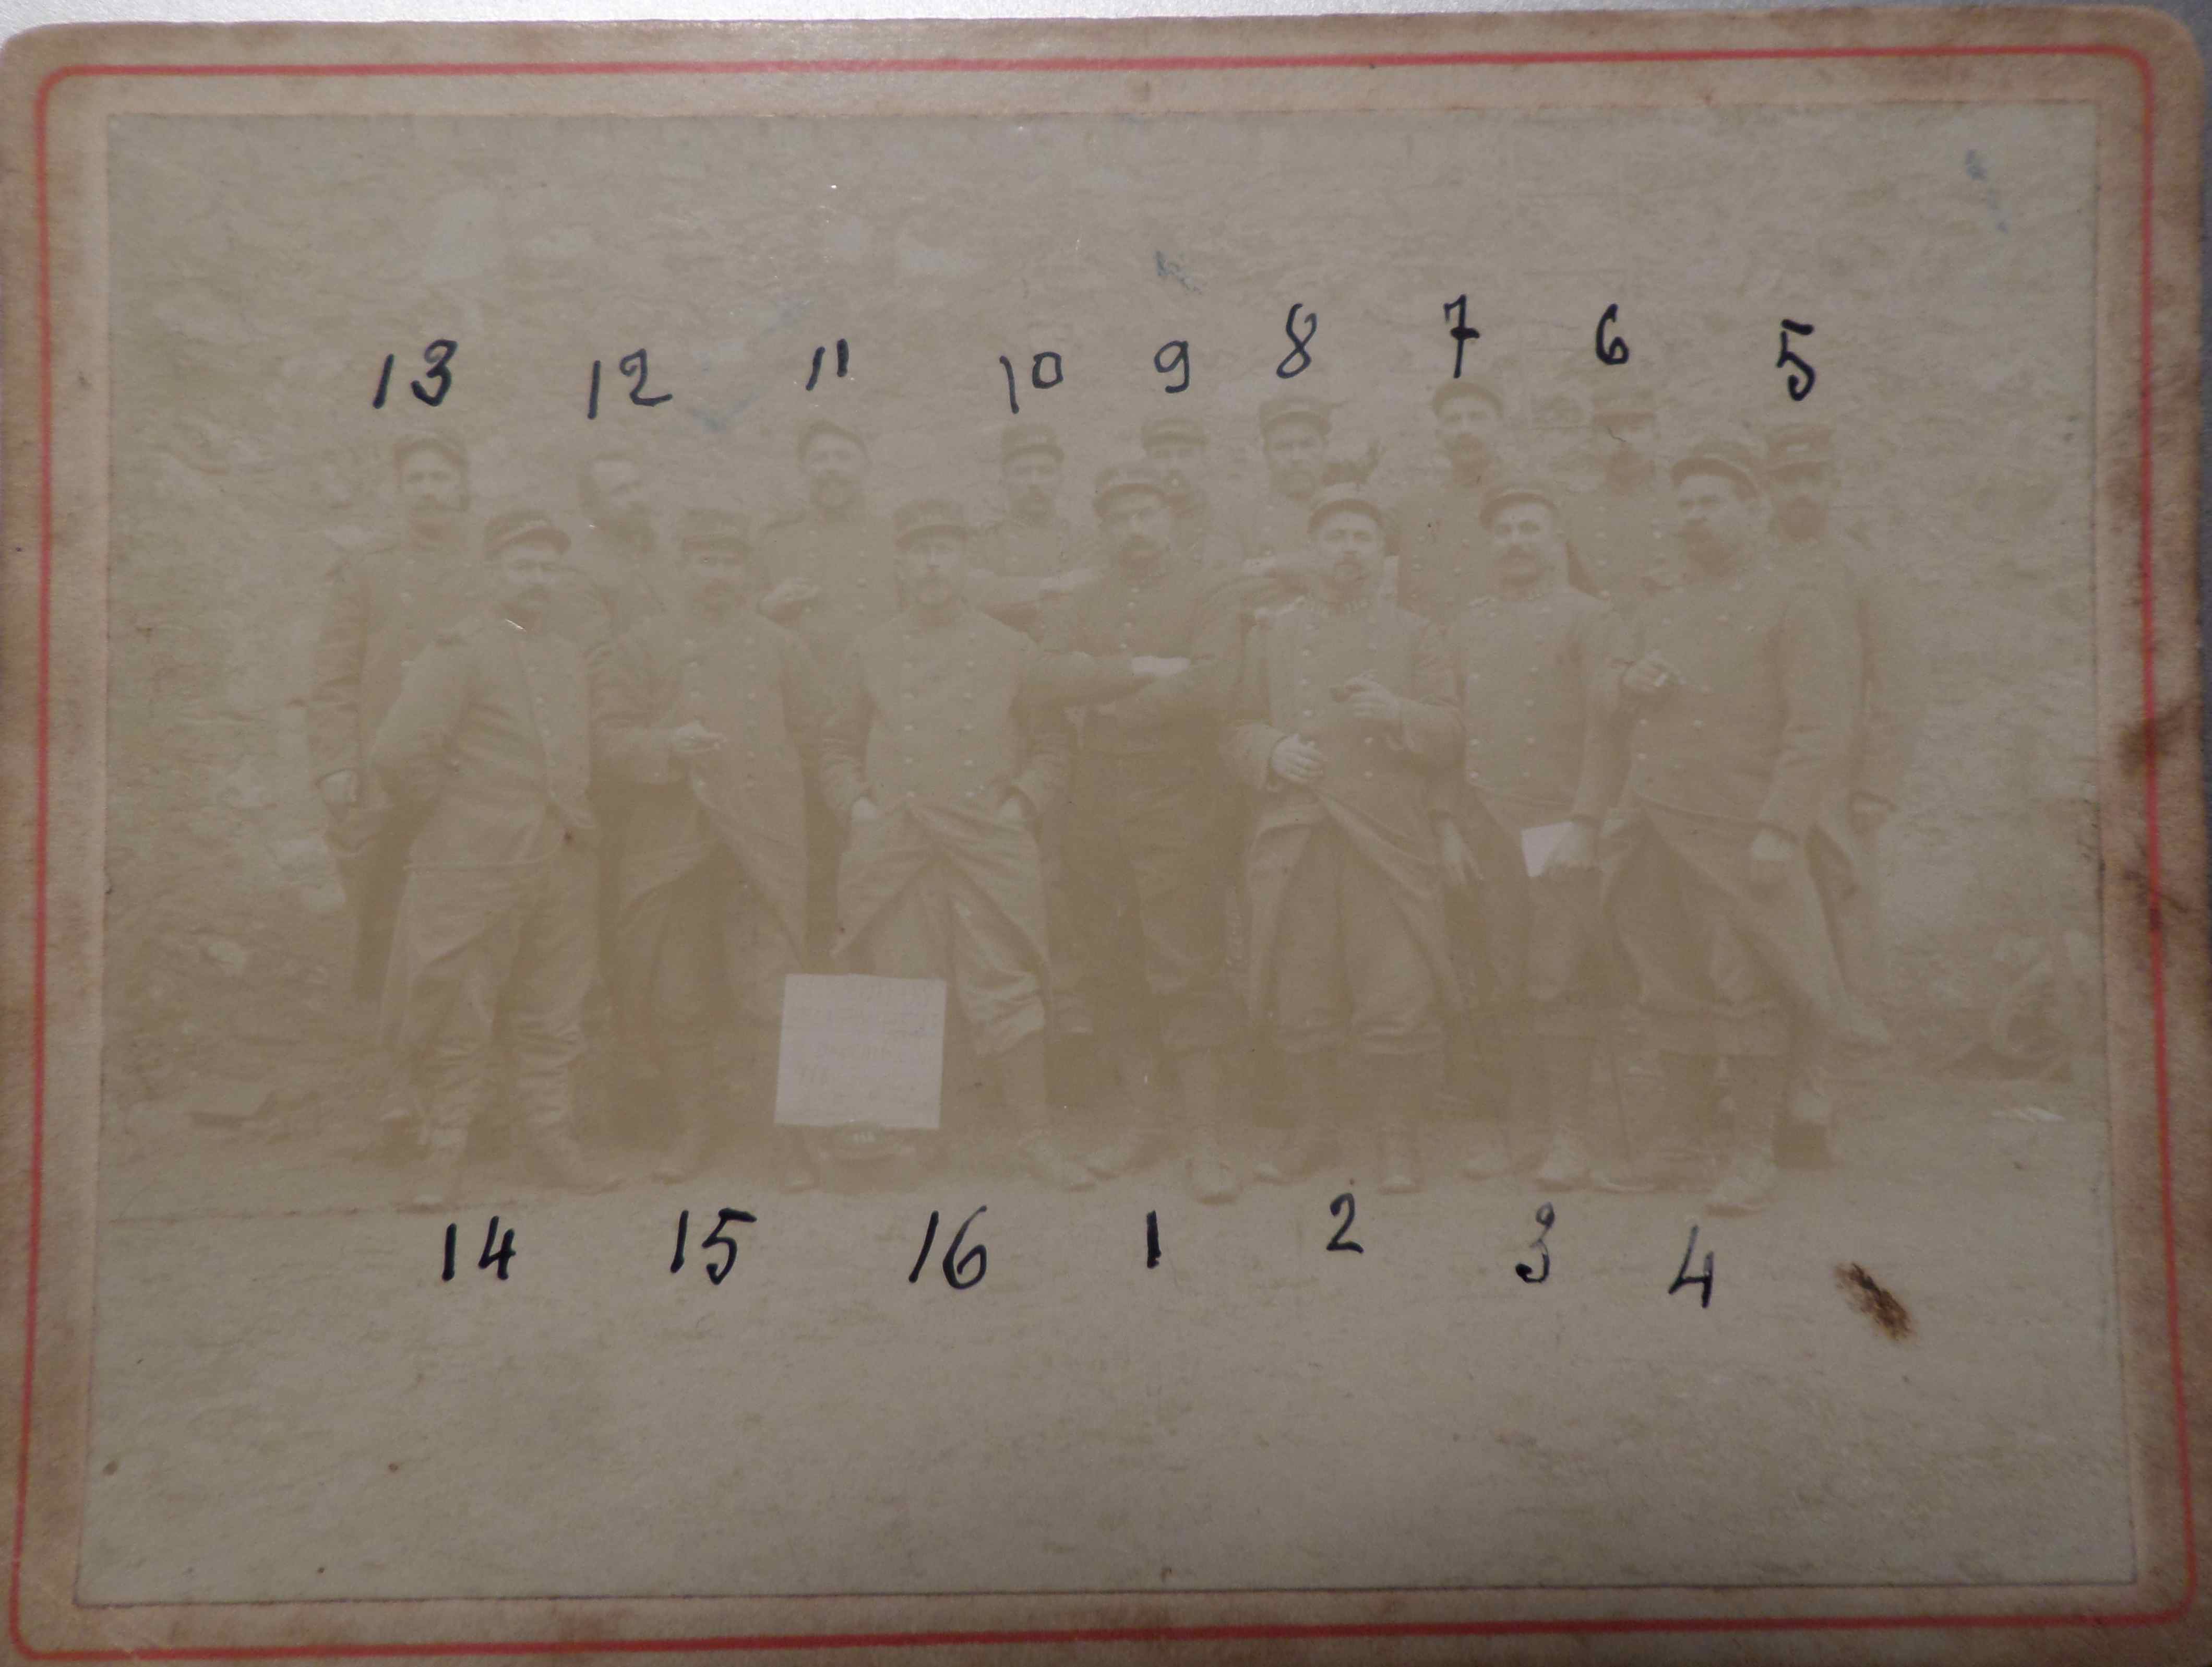 13 12 11 10 9 8 7 6 5
14 15 16 1 2 3 4